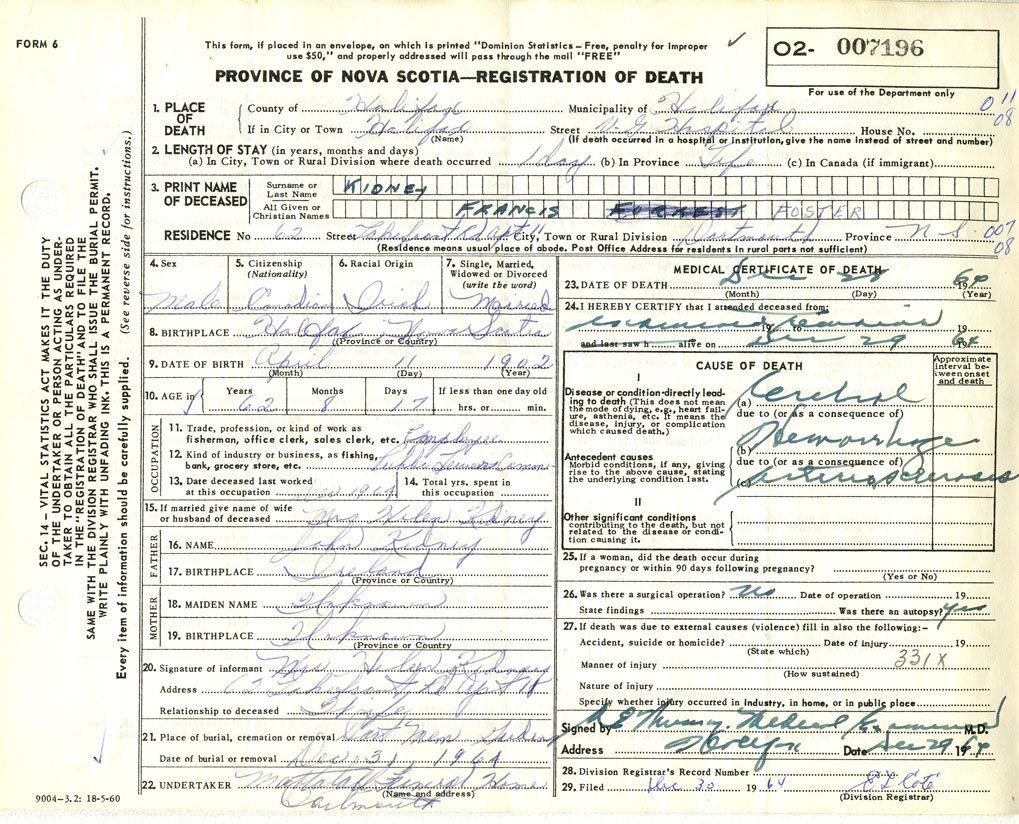 FORM 6
This form, if placed in an envelope, on which is printed "Dominion Statistics – Free, penalty for improper
use $50," and properly addressed will pass through the mail "FREE"
PROVINCE OF NOVA SCOTIA—REGISTRATION OF DEATH
02- 007196
For use of the Department only
1. PLACE OF DEATH
County of Halifax Municipality of Halifax
011
08
If in City or Town Halifax Street V. G. Hospital House No.
(Name) (If death occurred in a hospital or institution, give the name instead of street and number)
2. LENGTH OF STAY (in years, months and days)
(a) In City, Town or Rural Division where death occurred 1 day (b) In Province Life (c) In Canada (if immigrant)
3. PRINT NAME OF DECEASED
Surname or Last Name KIDNEY
All Given or Christian Names FRANCIS FORREST FOSTER
RESIDENCE No 62 Street City, Town or Rural Division Dartmouth Province N S.
007
08
(Residence means usual place of abode. Post Office Address for residents in rural parts not sufficient)
4. Sex
Male
5. Citizenship (Nationality)
Canadian
6. Racial Origin
Irish
7. Single, Married, Widowed or Divorced (write the word)
Married
8. BIRTHPLACE Halifax Nova Scotia
(Province or Country)
9. DATE OF BIRTH April 11 1902
(Month) (Day) (Year)
10. AGE in Years Months Days If less than one day old
62 8 17 hrs. or min.
OCCUPATION
11. Trade, profession, or kind of work as
fisherman, office clerk, sales clerk, etc. Employee
12. Kind of industry or business, as fishing,
bank, grocery store, etc. Public Service Comm
13. Date deceased last worked
at this occupation 1964
14. Total yrs. spent in
this occupation
15. If married give name of wife
or husband of deceased May Helen Kidney
FATHER
16. NAME John Kidney
17. BIRTHPLACE Ireland
(Province or Country)
MOTHER
18. MAIDEN NAME Unknown
19. BIRTHPLACE Unknown
(Province or Country
20. Signature of informant Mrs Helen Kidney
Address 62 Apt 11
Relationship to deceased Wife
21. Place of burial, cremation or removal Dart Mem Gardens
Date of burial or removal Dec 31 1964
22. UNDERTAKER Mattatall Funeral Home
(Name and address)
Dartmouth
MEDICAL CERTIFICATE OF DEATH
23. DATE OF DEATH Dec 28 1964
(Month) (Day) (Year)
24. I HEREBY CERTIFY that I attended deceased from:
19 to 19
and last saw h alive on Dec 29 1964
CAUSE OF DEATH
Approximate interval between onset and death
I
Disease or condition directly leading to death (This does not mean
the mode of dying, e.g., heart failure, asthenia, etc. It means the
disease, injury, or complication
which caused death.)
(a) Cerebral
due to (or as a consequence of)
Hemorrhage
Antecedent causes
Morbid conditions, if any, giving
rise to the above cause, stating
the underlying condition last.
(b)
due to (or as a consequence of)
(c) Arteriosclerosis
II
Other significant conditions
contributing to the death, but not
related to the disease or condition causing it.
25. If a woman, did the death occur during
pregnancy or within 90 days following pregnancy?
(Yes or No)
26. Was there a surgical operation? No Date of operation 19
State findings Was there an autopsy? yes
27. If death was due to external causes (violence) fill in also the following:–
Accident, suicide or homicide? Date of injury 19
(State which)
331X
Manner of injury
(How sustained)
Nature of injury
Specify whether injury occurred in industry, in home, or in public place
Signed by Medical Examiner M.D.
Address Date Dec 29 1964
28. Division Registrar's Record Number
29. Filed Dec 30 1964
(Division Registrar)
SEC. 14 – VITAL STATISTICS ACT MAKES IT THE DUTY
OF THE UNDERTAKER OR PERSON ACTING AS UNDER-
TAKER TO OBTAIN ALL THE PARTICULARS REQUIRED
IN THE "REGISTRATION OF DEATH" AND TO FILE THE
SAME WITH THE DIVISION REGISTRAR WHO SHALL ISSUE THE BURIAL PERMIT.
WRITE PLAINLY WITH UNFADING INK. THIS IS A PERMANENT RECORD.
Every item of information should be carefully supplied. (See reverse side for instructions.)
9004–3.2: 18-5-60